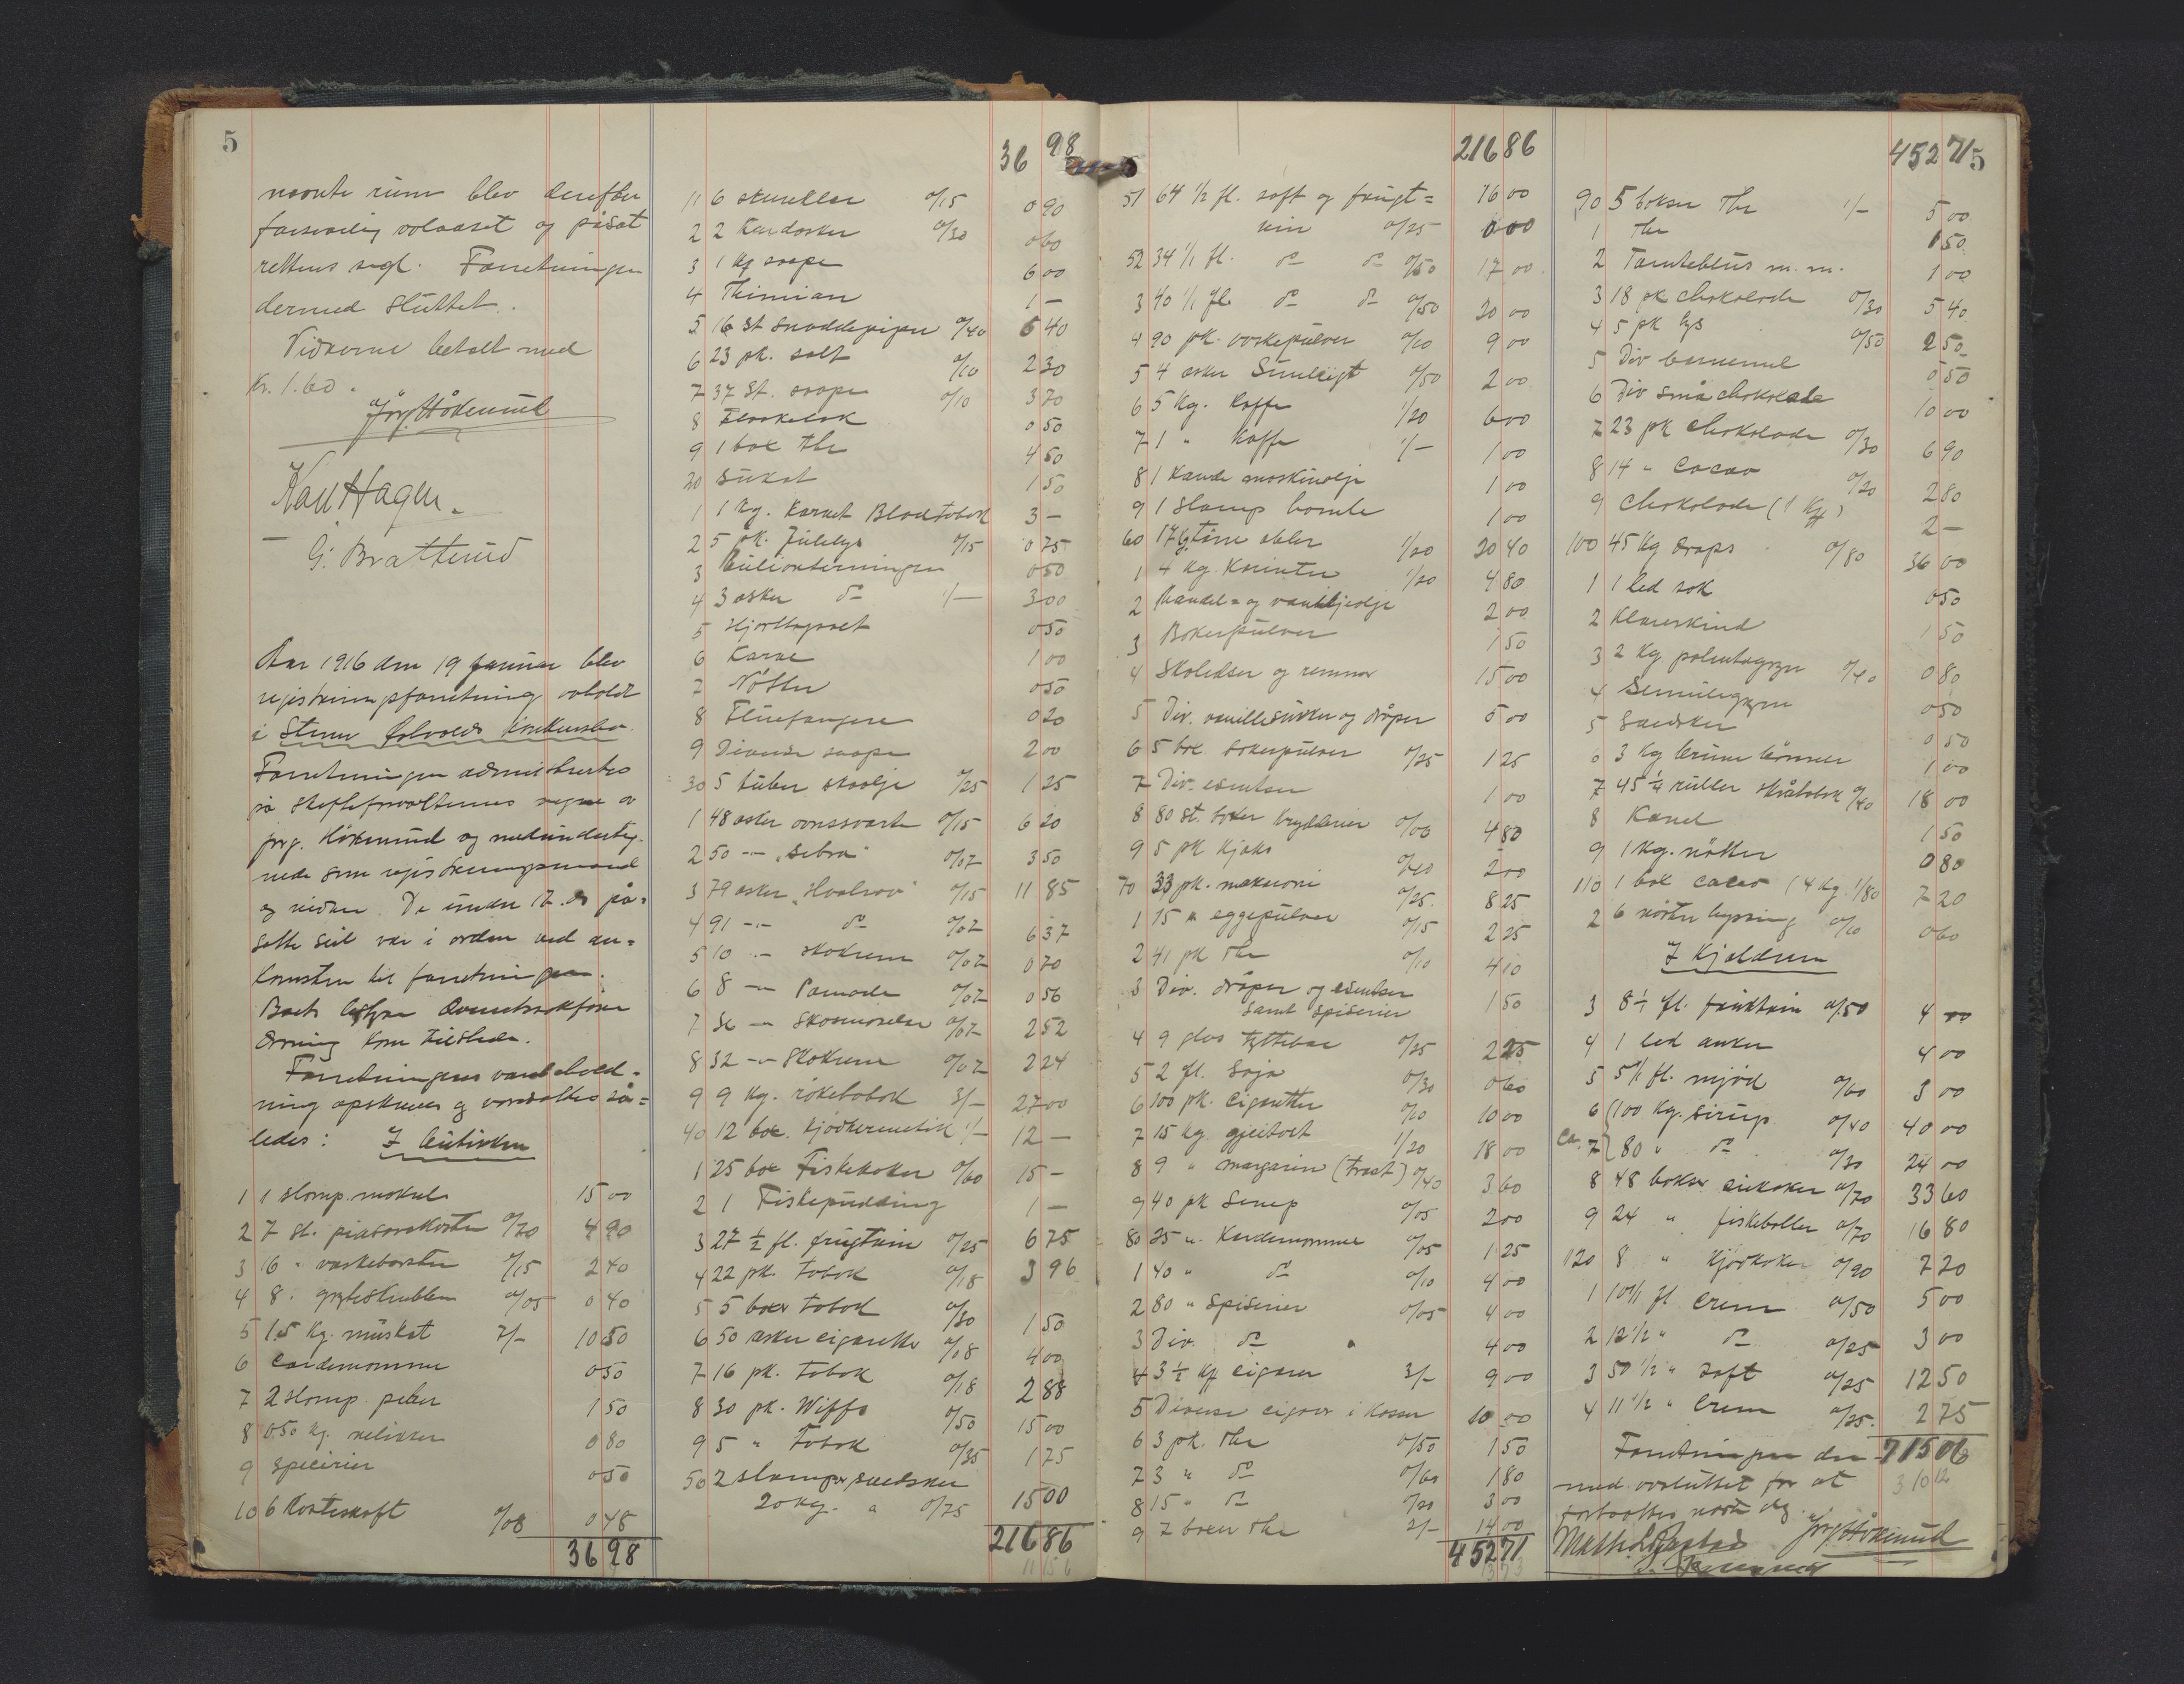 5
nævnte rum blev derefter
forsvarlig avlaaset og påsat
rettens segl. Forretningen
dermed sluttet.
Vidnerne betalt med
Kr. 1.60.
Karl Hagen.
G. Bratterud
Aar 1916 den 19 januar blev
registreringsforretning avholdt
i Stener konkursbo.
Forretningen administrertes
på skifteforvalterens vegne av
og undertegnede
nede som registreringsmænd
og vidner. De under 12. ds på=
satte seil var i orden ved an=
komsten til forretningen.
Boets bestyrer Overretssakfører
kom tilstede.
Forretningens varebehold=
ning opskreves og verdsattes så=
ledes: I butikken
1 1 slump 15 00
2 7 st. piasavakoster 0/70 4 90
3 16 " vaskebørster 0/15 2 40
4 8 " 0/05 0 40
5 1.5 Kg. muskat 7/- 10 50
6 Cardemomme 0 50
7 2 slump. peber 1 50
8 0.50 Kg. nelikker 0 80
9 Specirier 0 50
10 6 Kosteskaft 0/08 0 48
36 98
36 98
11 6 0/15 0 90
2 2 Kardosker 0/30 0 60
3 1 Kg saape 6 00
4 Thimian 1 -
5 16 st snaddepiper 0/40 6 40
6 23 pk. salt 0/10 2 30
7 37 st. saape 0/10 3 70
8 Flaskelak 0 50
9 1 box the 4 50
20 Sukat 1 50
1 1 Kg. Karvet Bladtobak 3 -
2 5 pk. Julelys 0/15 0 75
3 Buliontærninger 0 50
4 3 æsker do 1/- 3 00
5 Hjorttaksalt 0 50
6 Karve 1 00
7 Nötter 0 50
8 Fluefangere 0 20
9 Diverse saape 2 00
30 5 tuber 0/25 1 25
1 48 æsker ovnssværte 0/15 6 20
2 50 -"- "Sebra" 0/07 3 50
3 79 æsker 0/15 11 85
4 91 -"- do 0/07 6 37
5 10 -"- skokrem 0/07 0 70
6 8 -"- Pomade 0/07 0 56
7 36 -"- skosmörelse 0/07 2 52
8 32 -"- Skokrem 0/07 2 24
9 9 Kg. röketobak 3/- 27 00
40 12 box. kjødhermetik 1/- 12 -
1 25 box Fiskekaker 0/60 15 -
2 1 Fiskepudding 1 -
3 27 1/2 fl. frugtvin 0/25 6 75
4 22 pk. tobak 0/18 3 96
5 5 boxer tobak 0/30 1 50
6 50 æsker cigaretter 0/08 4 00
7 16 pk. tobak 0/18 2 88
8 30 pk. Wiffs 0/50 15 00
9 5 " Tobak 0/35 1 75
50 2 slumper svedsker
20 Kg. a 0/75 15 00
216 86
11 15 6
216 86
51 64 1/2 fl. saft og frugt=
vin 0/25 16 00
52 34 1/1 fl. do do 0/50 17 00
3 40 1/1 fl. do do 0/50 20 00
4 90 pk. vaskepulver 0/10 9 00
5 4 æsker Sunligt 0/50 2 00
6 5 Kg. Kaffe 1/20 6 00
7 1 " Kaffe 1/- 1 00
8 1 Kande maskinolje 1 00
9 1 slump humle 1 00
60 17 Kg törre æbler 1/20 20 40
1 4 Kg. Korinter 1/20 4 80
2 Mandel= og 2 00
3 Bakerpulver 1 50
4 Skolisser og remmer 15 00
5 Div. vanillesukker og dråper 5 00
6 5 box. bakerpulver 0/25 1 25
7 Div. esentser 1 00
8 80 st. boxer krydderier 0/06 4 80
9 5 pk kjæks 0/40 2 00
70 33 pk. makaroni 0/25 8 25
1 15 pk eggepulver 0/15 2 25
2 41 pk the 0/10 4 10
3 Div. dråper og esentser
samt spiserier 1 50
4 9 glas tyttebær 0/25 2 25
5 2 fl. Soja 0/30 0 60
6 100 pk. Cigaretter 0/10 10 00
7 15 Kg gjeitost 1/20 18 00
8 9 " margarin 0/40 3 60
9 40 pk Senep 0/05 2 00
80 25 " Kardemomme 0/05 1 25
1 40 " do 0/10 4 00
2 80 " Spiserier 0/05 4 00
3 Div. do 4 00
4 3 1/2 Kg cigarer 3/- 9 00
5 Diverse cigarer i kasser 10 00
6 3 pk. the 0/50 1 50
7 3 " do 0/60 1 80
8 15 " do 0/20 3 00
9 7 boxer the 2/- 14 00
452 71
452 71
5
90 5 bokser The 1/- 5 00
1 the 1 50
2 m.m. 1 00
3 18 pk chokolade 0/30 5 40
4 5 pk lys 0/50 2 50
5 Div barnemel 0 50
6 Div små chokolade 10 00
7 23 pk chokolade 0/30 6 90
8 14 " Cacao 0/20 2 80
9 Chokolade (1 Kg) 2 -
100 45 Kg drops 0/80 36 00
1 1 led sæk 0 50
2 Klaverskind 1 50
3 2 Kg potetesgryn 0/40 0 80
4 Semulegryn 0 50
5 Svedsker 0 50
6 3 Kg brune bönner 1 00
7 45 1/4 ruller skråtobak 0/40 18 00
8 Kanel 1 50
9 1 Kg. nötter 0 80
110 1 box cacao (4 Kg. 1/80 7 20
2 6 nöster hyssing 0/10 0 60
I Kjælderen
3 8 1/1 fl. fruktvin 0/50 4 00
4 1 led anker 4 00
5 5 1/1 fl. mjød 0/60 3 00
6 100 Kg. Sirup 0/40 40 00
ca. 7 80 " do 0/30 24 00
8 48 bokser 0/70 33 60
9 24 " fiskeboller 0/70 16 80
120 8 " Kjødkaker 0/90 7 20
1 10 1/1 fl Crem 0/50 5 00
2 12 1/2 " do 0/25 3 00
3 50 1/2 " Saft 0/25 12 50
4 11 1/2 " Crem 0/25 2 75
Forretningen der=
715 06
med avsluttet for at
fortsættes næste dag.